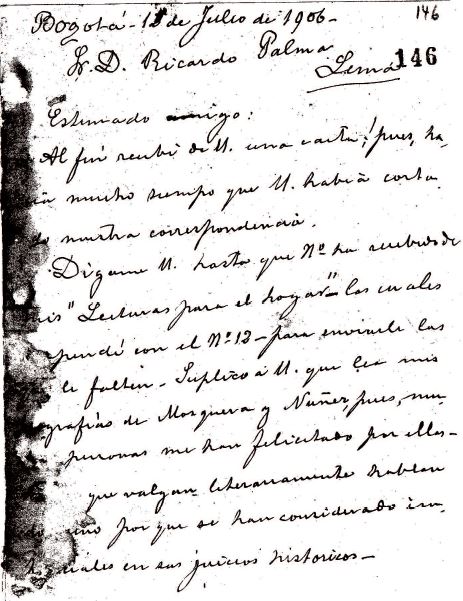 146
Bogotá - 12 de Julio de 1906 -
Sr. D. Ricardo Palma
Lima 146
Estimado amigo:
Al fin recibí de U. una carta! pues, ha-
cía mucho tiempo que U. había corta
do nuestra correspondencia.
Dígame U. hasta que Nº ha recibido de
mis "Lecturas para el hogar" - las cuales
pendí con el Nº 12 - para enviarle las
le falten - Suplico á U. que lea mis
grafías de Mosquera y Nuñez, pues, mu
personas me han felicitado por ellas -
que valgan literariamente hablan
do, sino por que se han considerado im
ciales en sus juicios históricos -